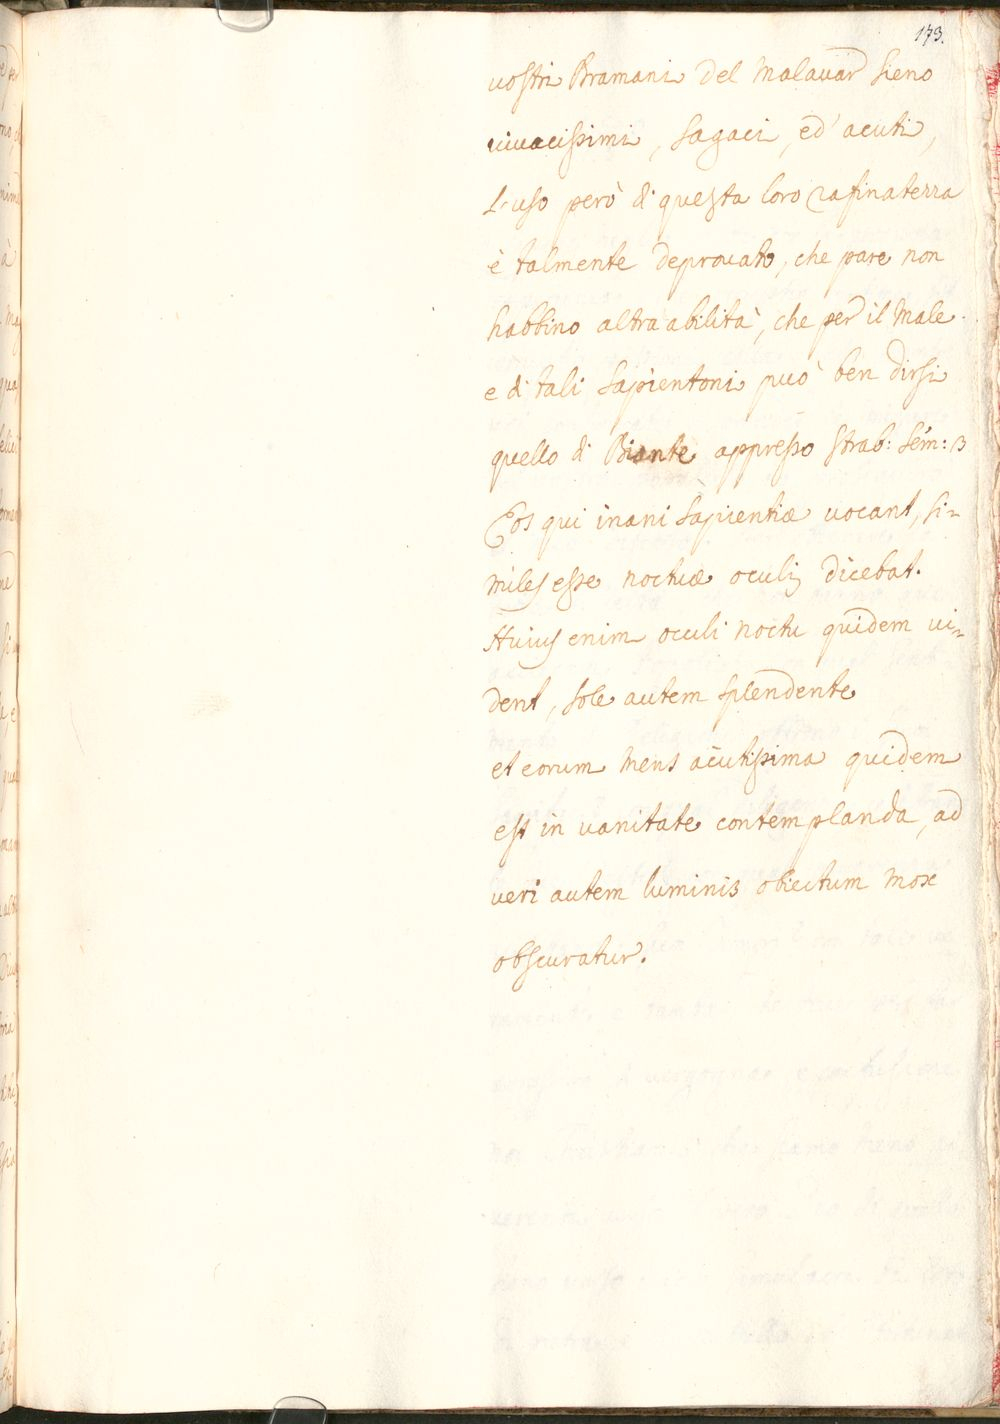 173.
vostri Bramani del Malavar sieno
vivacissimi, sagaci, ed' acuti,
L'uso però di questa loro rafinatezza
è talmente depravato, che pare non
habbino altra abilità, che per il Male
e di tali Sapientoni può ben dirsi
quello di Biante appresso Strab: Sem: 3
Eos qui inani Sapientiæ vocant, si-
miles esse noctuæ oculis dicebat.
Huius enim oculi noctu quidem vi-
dent, sole autem splendente
et eorum Mens acutissima quidem
est in vanitate contemplanda, ad
veri autem luminis obiectum mox
obscuratur.